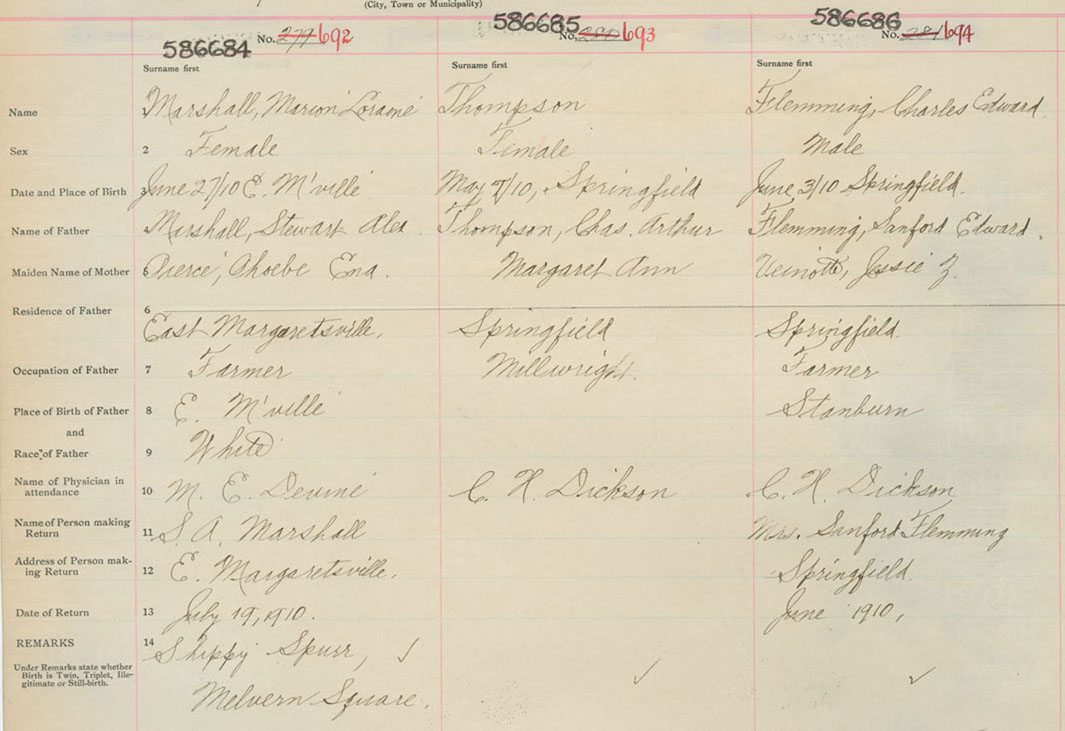 (City, Town or Municipality)
586684 No. 279 692 586685 No. 280 693 586686 No. 281 694
Surname first Surname first Surname first
Name 1 Marshall, Marion Loraine Thompson Flemming, Charles Edward
Sex 2 Female Female Male
Date and Place of Birth 3 June 27/10 E. M'ville May 7/10, Springfield June 3/10 Springfield.
Name of Father 4 Marshall, Stewart Alex. Thompson, Chas. Arthur Flemming, Sanford Edward.
Maiden Name of Mother 5 Pierce, Phoebe Ena. Margaret Ann Veinott, Jessie Z.
Residence of Father 6 East Margaretsville. Springfield Springfield.
Occupation of Father 7 Farmer Millwright. Farmer
Place of Birth of Father 8 E. M'ville Stanburn
and
Race of Father 9 White
Name of Physician in
attendance 10 M. E. Devine C. H. Dickson C. H. Dickson
Name of Person making
Return 11 S. A. Marshall Mrs. Sanford Flemming
Address of Person mak-
ing Return 12 E. Margaretsville. Springfield.
Date of Return 13 July 19, 1910. June 1910,
REMARKS 14 Shippy Spurr,
Under Remarks state whether
Birth is Twin, Triplet, Ille-
gitimate or Still-birth.
Melvern Square.